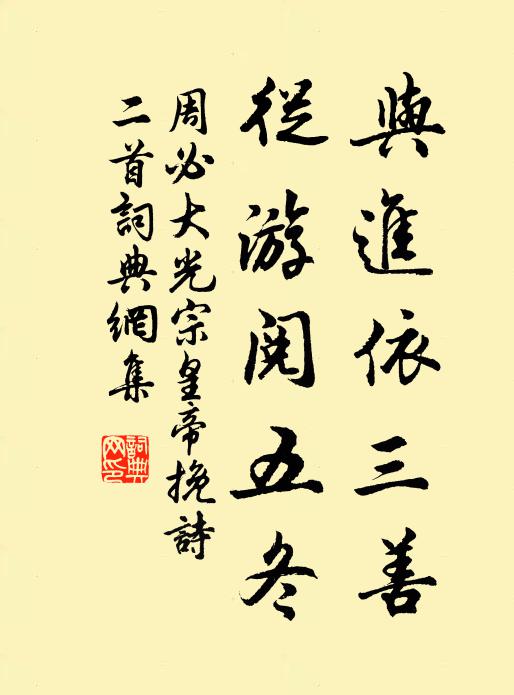 與進依三善
從游閱五冬
周必大光宗皇帝挽詩
二首詞典網集
詞典
网印